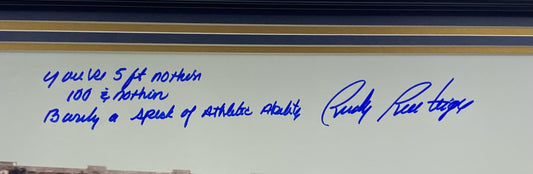 you're 5 ft nothin
100 & nothin
Barely a speck of Athletic Ability
Rudy Ruettiger